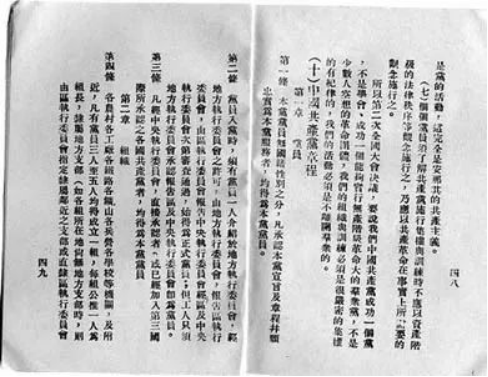 四八
是黨的活動，這完全是安那其的共產主義。
（七）個個黨員須了解共產黨施行集權與訓練時不應以資產階
級的法律秩序等觀念施行之，乃應以共產革命在事實上所需要的
觀念施行之。
所以第二次全國大會決議，要說我們中國共產黨成功一個黨
，不是學會，成功一個能夠實行無產階級革命大的羣衆黨，不是
少數人空想的革命團體，我們的組織與訓練必須是很嚴密的集權
的有紀律的，我們的活動必須是不離開羣衆的。
（十）中國共產黨章程
第一章 黨員
第一條 本黨黨員無國籍性別之分，凡承認本黨宣言及章程并願
忠實爲本黨服務者，均得爲本黨黨員。
第二條 黨員入黨時，須有黨員一人介紹於地方執行委員會，經
地方執行委員會之許可，由地方執行委員會，報告區執行
委員會，由區執行委員會報告中央執行委員會經區及中央
執行委員會次第審查通過，始得爲正式黨員；但工人只須
地方執行委員會承認報告區及中央執行委員會卽爲黨員。
第三條 凡經中央執行委員會，直接承認者，或已經加入第三國
際所承認之各國共產黨者，均得爲本黨黨員。
第二章 組織
第四條 各農村各工廠各鐵路各鑛山各兵營各學校等機關，及附
近，凡有黨員三人至五人均得成立一組，每組公推一人爲
組長，隸屬地方支部（如各組所在地尙無地方支部時，則
由區執行委員會指定隸屬鄰近之支部或直隸區執行委員會
四九